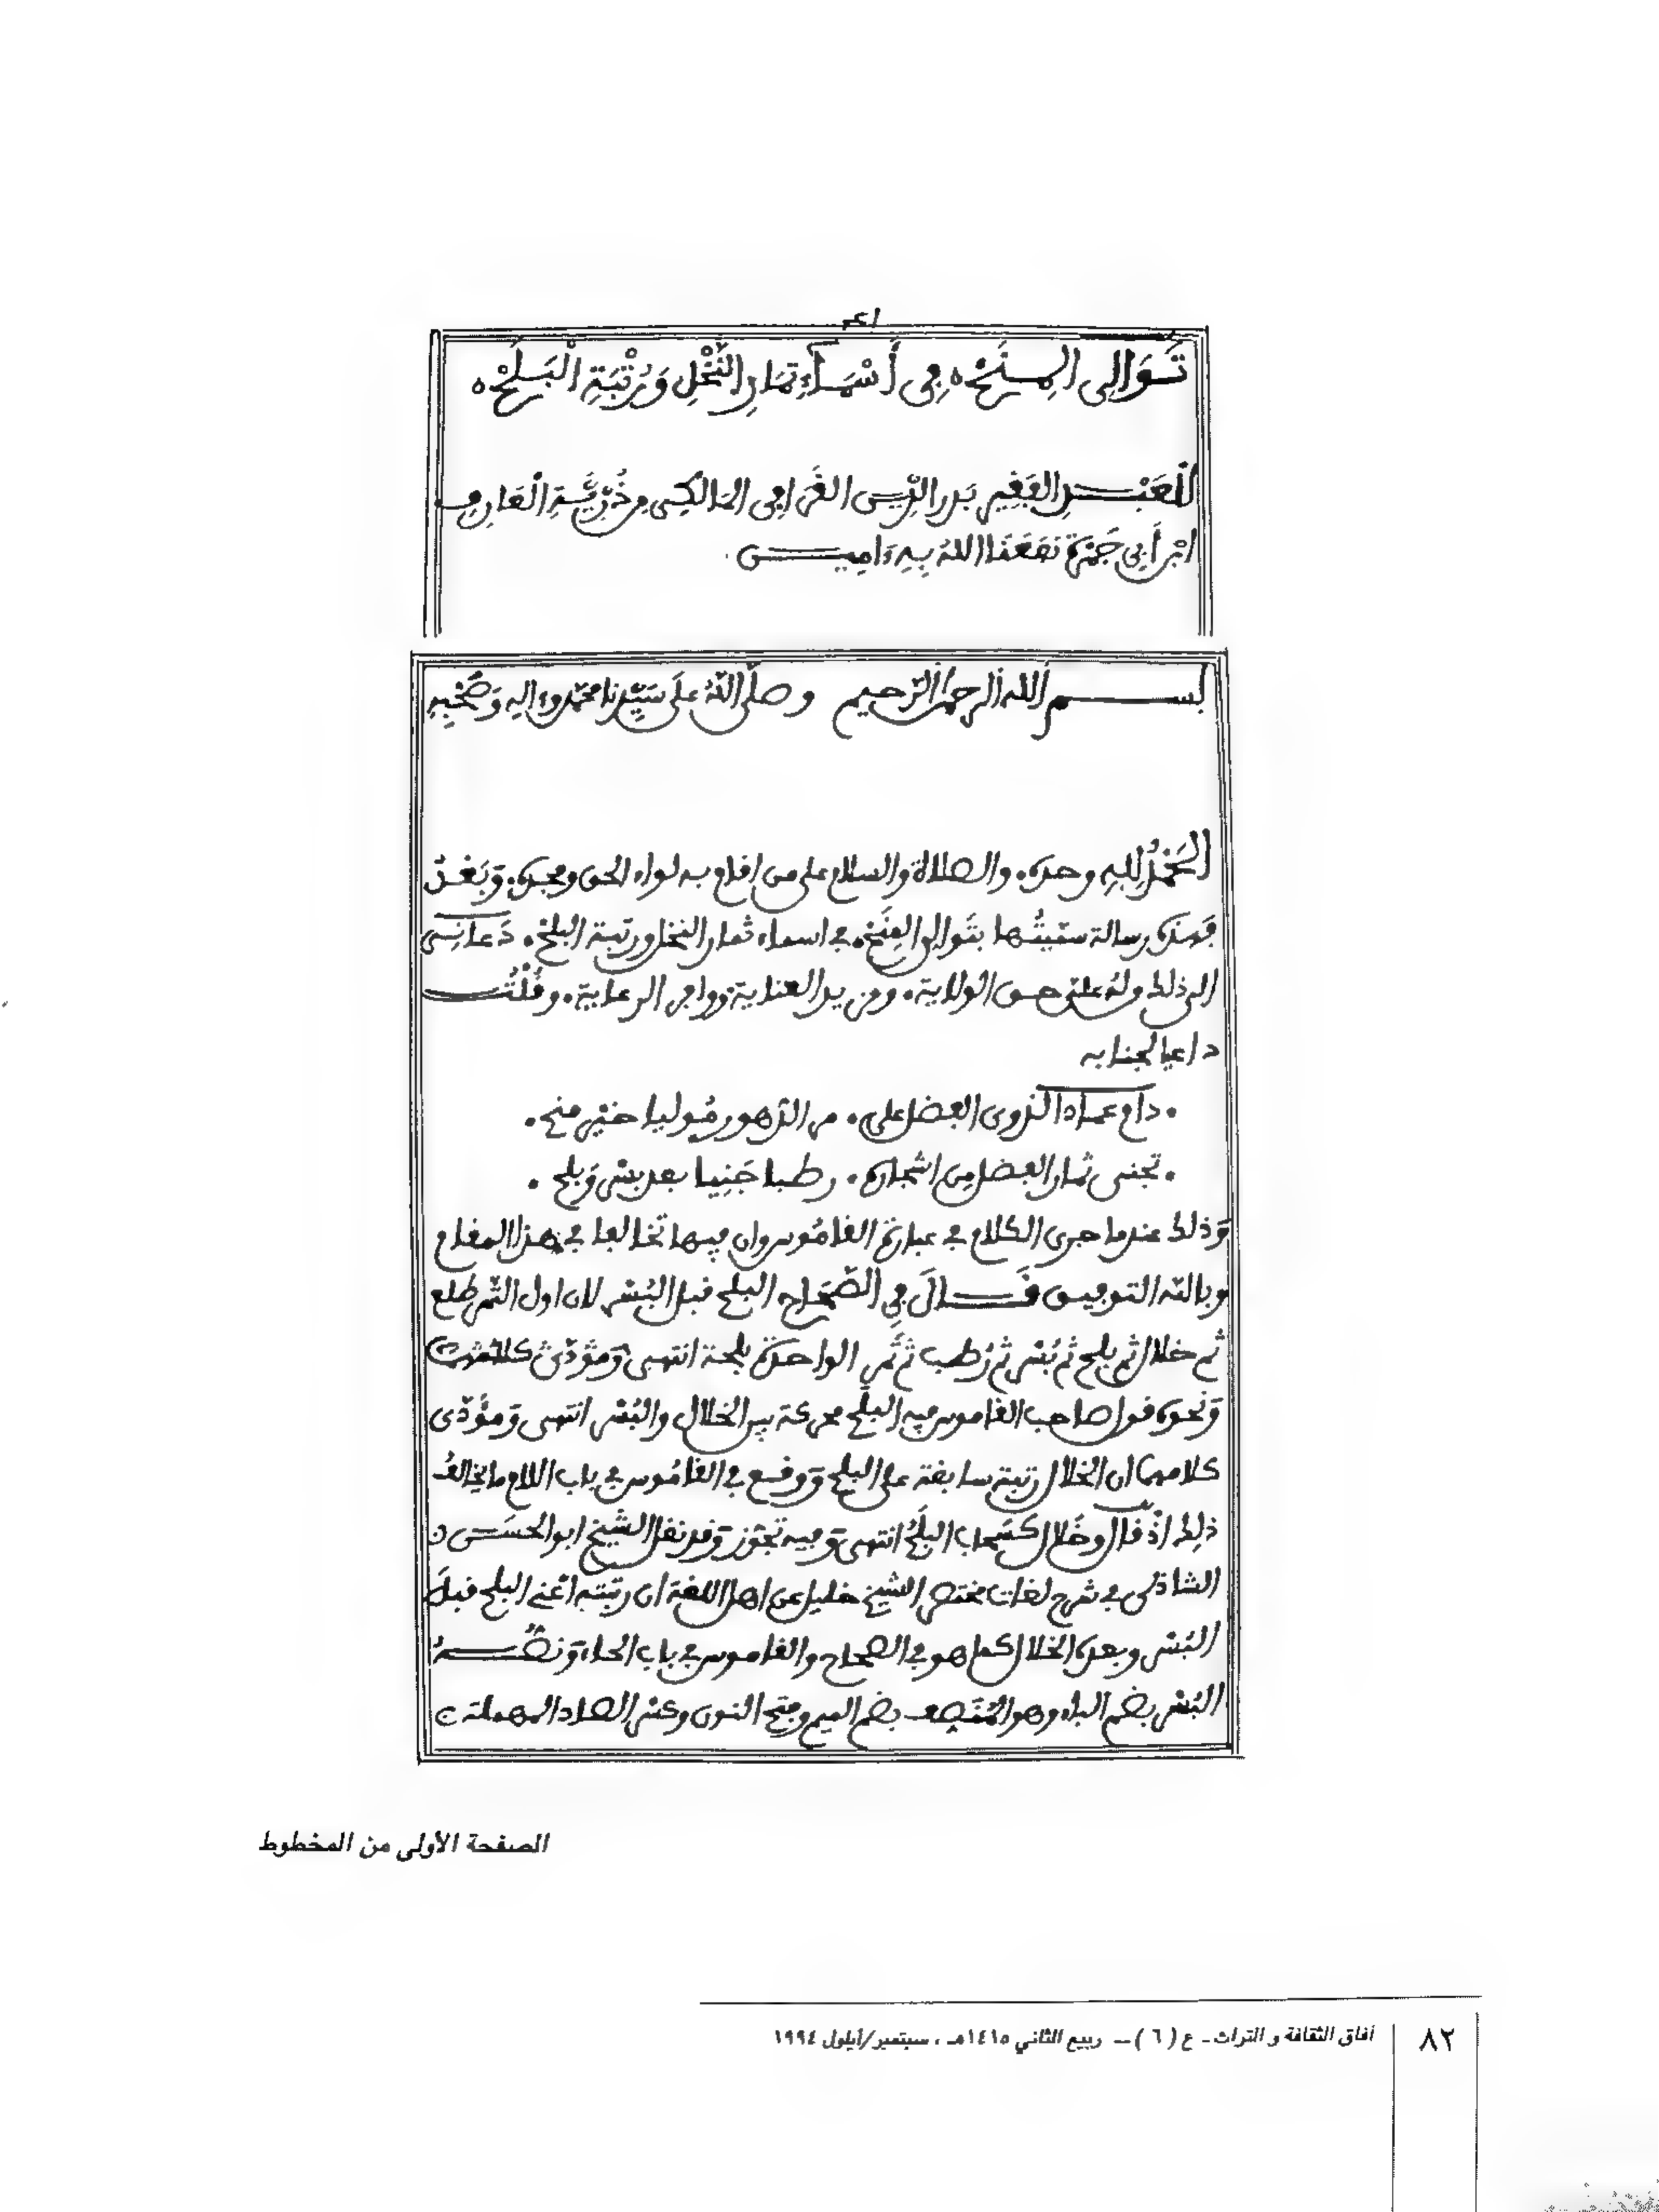 تَوَالِى الْمِنَحْ ه فِى أَسْمَآءِ ثِمَارِ النَّخْلِ وَرُتْبَةِ الْبَلَحْ ه
لِلْعَبْدِ الفَقِيرِ بَدر الدِّيـن القَرَافِى المَالكِى مِن ذُرِّيَّةِ الْعَارِفِ
ابْنِ أَبِى جَمْرَة نفَعَنَا اللهُ بِهِ ءَامِيـن
بسم الله الرحمن الرّحيم وصلّى اللّهُ علَى سَيِّدِنا محَمّد وءالِهِ وَصَحْبِهِ
الحَمْدُ لِلهِ وحده. والصلاة والسلام على من اقام به لواء الحق ومجده. وَبَعْدُ
فهذه رسالة سمّيتُها بتَوالى المِنَحْ. في اسماء ثمار النخل ورتبة البلحْ. دَعانِى
الى ذلك وله علىّ حق الولاية. ومزيد العناية ووافر الرعاية. وقُلْتُ
داعيا لجنابه
. دام عماد الذوى الفضل على. مر الدّهور مُوليا خيْر منح.
. تجنى ثمار الفضل مِن اشجاره. رطبا جَنِيا بعد بسْر وَبلح.
وَذلك عندما جرى الكلام في عبارة القامُوس وان فيها تخالفا في هذا المقام
وبالله التوفيـق قَـالَ فِي الصّحَاح البلح قبل البُسْر لان اول التّمر طلع
ثم خلال ثم بلح ثم بُسْر ثم رُطب ثم تَمر الواحدة بلحة انتهى وَمؤدّى كلامه
وَنحوه قول صاحب القاموس فيه البلَح محركة بين الخلال والبُسْر انتهى وَمؤَدّى
كلامهما ان الخلال رتبته سابقة على البلح وَوقـع في القامُوس في باب اللام ما يخالفُ
ذلِك اذْ قال وخَلال كَسَحاب البلَحُ انتهى وَفيه تجوّز وَقد نقل الشّيخ ابو الحسَـن
الشاذلى في شرح لغات مختصر الشيخ خليل عن اهل اللغة ان رتبته اعْنى البلح قبلَ
البُسْر وبعده الخلال كما هو في الصحاح والقاموس في باب الحاء وَنصُّـهُ
البُسْر بضم الباء وهو المُنَصِف بضم الميم وفتح النون وكسْر الصاد المهملة
الصفحة الأولى من المخطوط
٨٢
آفاق الثقافة و التراث ـ ع ( ٦ ) ــ ربيع الثاني ١٤١٥هـ ، سبتمبر/أيلول ١٩٩٤